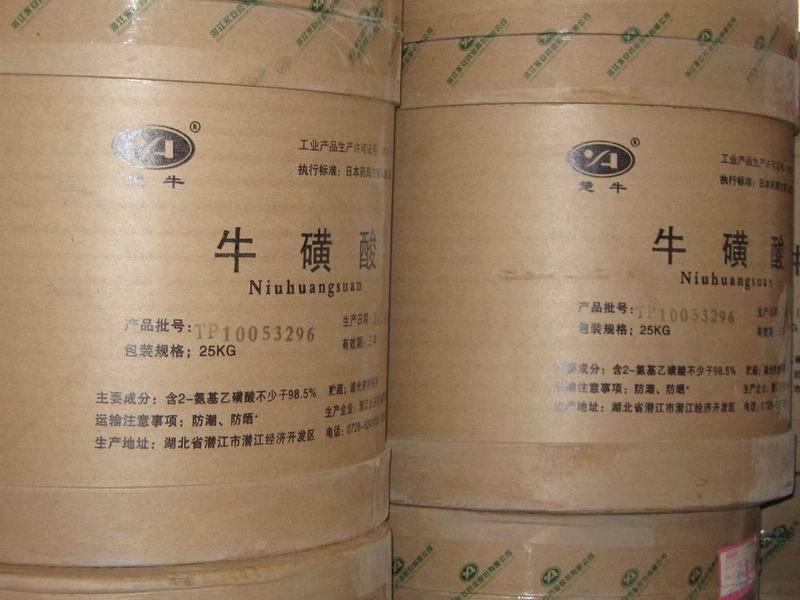 楚牛
工业产品生产许可证号
执行标准：日本药局方
牛磺酸
Niuhuangsuan
产品批号：TP10053296
生产日期：
包装规格；25KG
有效期：三年
主要成分：含2-氨基乙磺酸不少于98.5%
贮藏：
运输注意事项：防潮、防晒
生产企业：
生产地址：湖北省潜江市潜江经济开发区
电话：0728-
楚牛
工业产品生产许可证号
执行标准：日本药局方
牛磺酸
Niuhuangsuan
产品批号：TP10053296
生产日
包装规格；25KG
有效期：三
主要成分：含2-氨基乙磺酸不少于98.5%
贮藏：
运输注意事项：防潮、防晒
生产企业
生产地址：湖北省潜江市潜江经济开发区
电话：0728